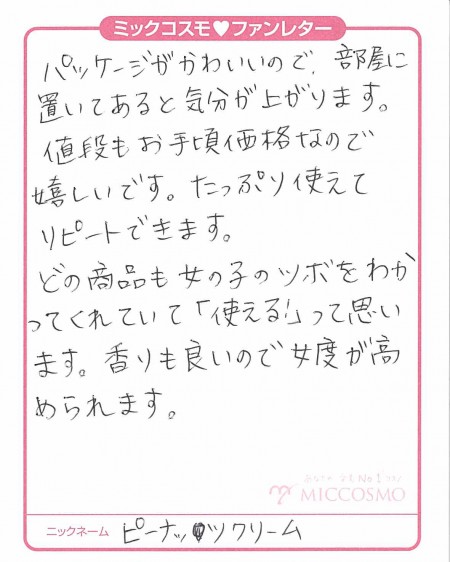 ミックコスモ♥ファンレター
パッケージがかわいいので、部屋に
置いてあると気分が上がります。
値段もお手頃価格なので
嬉しいです。たっぷり使えて
リピートできます。
どの商品も女の子のツボをわか
ってくれていて「使える!」って思い
ます。香りも良いので女度が高
められます。
MICCOSMO
ニックネーム ピーナッツクリーム